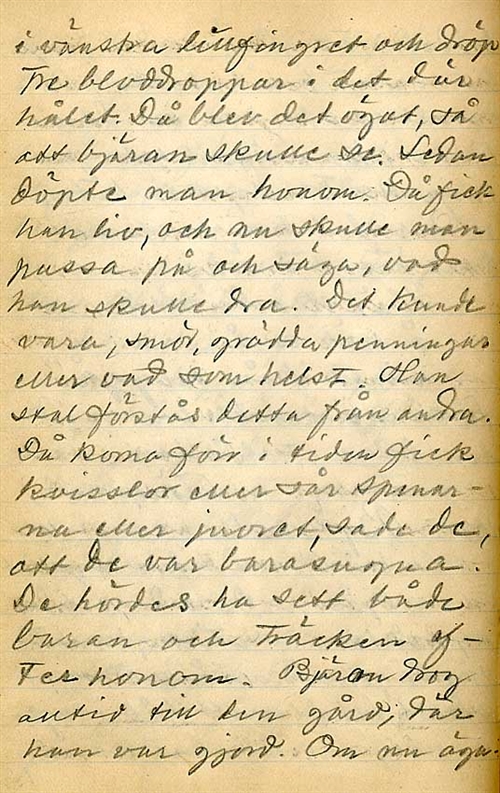 i vänstra lillfingret och dröp
tre bloddroppar i det där
hålet. Då blev det ögat, så
att bjäran skulle se. Sedan
döpte man honom. Då fick
han liv, och nu skulle man
passa på och säga, vad
han skulle dra. Det kunde
vara, smör, grädda penningar
eller vad som helst. Han
stal förstås detta från andra.
Då korna förr i tiden fick
kvisslor eller sår spenar-
na eller juvret, sade de,
att de var barasugna.
De hördes ha sett både
baran och träcken ef-
ter honom. Bjäran drog
alltid till den gård, där
han var gjord. Om nu äga-